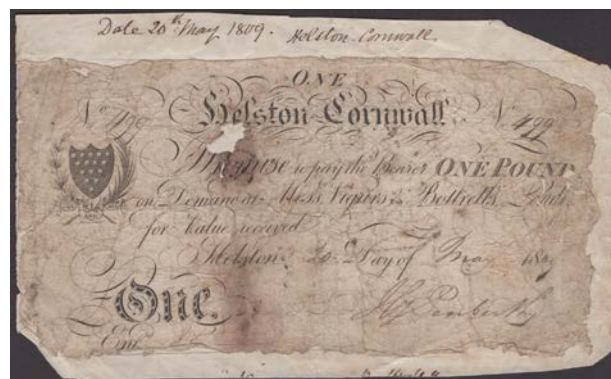 Date 20th May 1809. Helston Cornwall.
ONE
Helston Cornwall
No 499 No 499
I Promise to pay the Bearer ONE POUND
on Demand at Mess. Vigurs Bottrells,
for Value received
Helston 20 Day of May 1809
One.
Ent